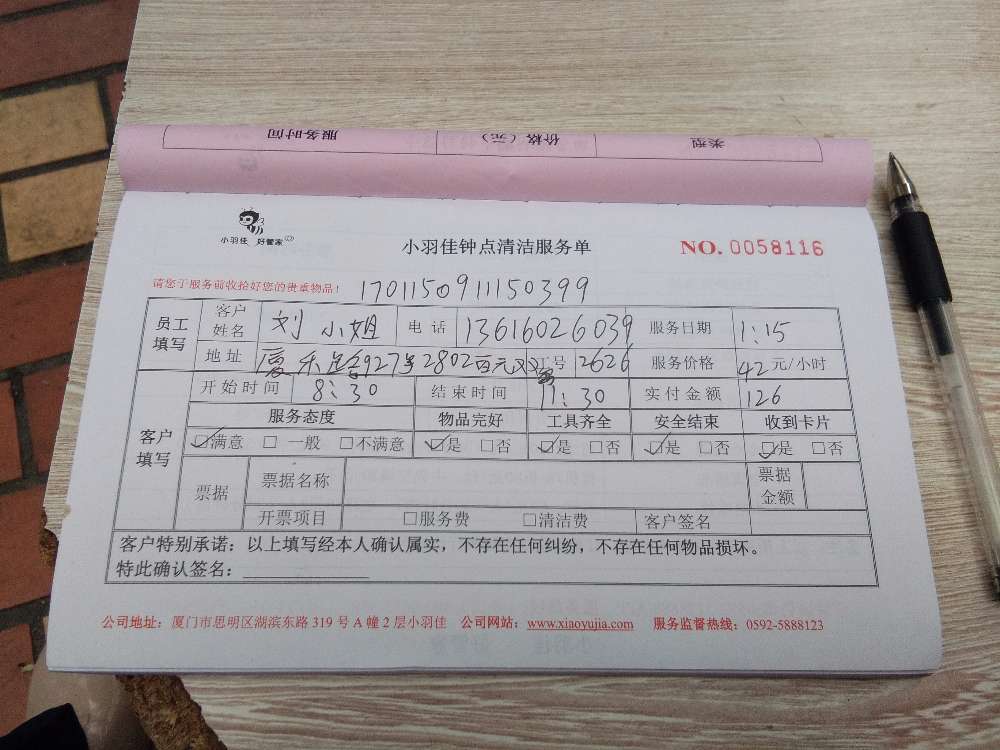 服务时间 价格（元） 类型
小羽佳 好管家
小羽佳钟点清洁服务单 NO. 0058116
请您于服务前收拾好您的贵重物品！ 1701150911150399
员工填写 客户姓名 刘小姐 电话 13616026039 服务日期 1:15
地址 927号2802 工号 2626 服务价格 42元/小时
客户填写 开始时间 8:30 结束时间 11:30 实付金额 126
服务态度 物品完好 工具齐全 安全结束 收到卡片
☑满意 □一般 □不满意 ☑是 □否 ☑是 □否 ☑是 □否 ☑是 □否
票据 票据名称 票据金额
开票项目 □服务费 □清洁费 客户签名
客户特别承诺：以上填写经本人确认属实，不存在任何纠纷，不存在任何物品损坏。
特此确认签名：
公司地址：厦门市思明区湖滨东路319号A幢2层小羽佳 公司网站：www.xiaoyujia.com 服务监督热线：0592-5888123